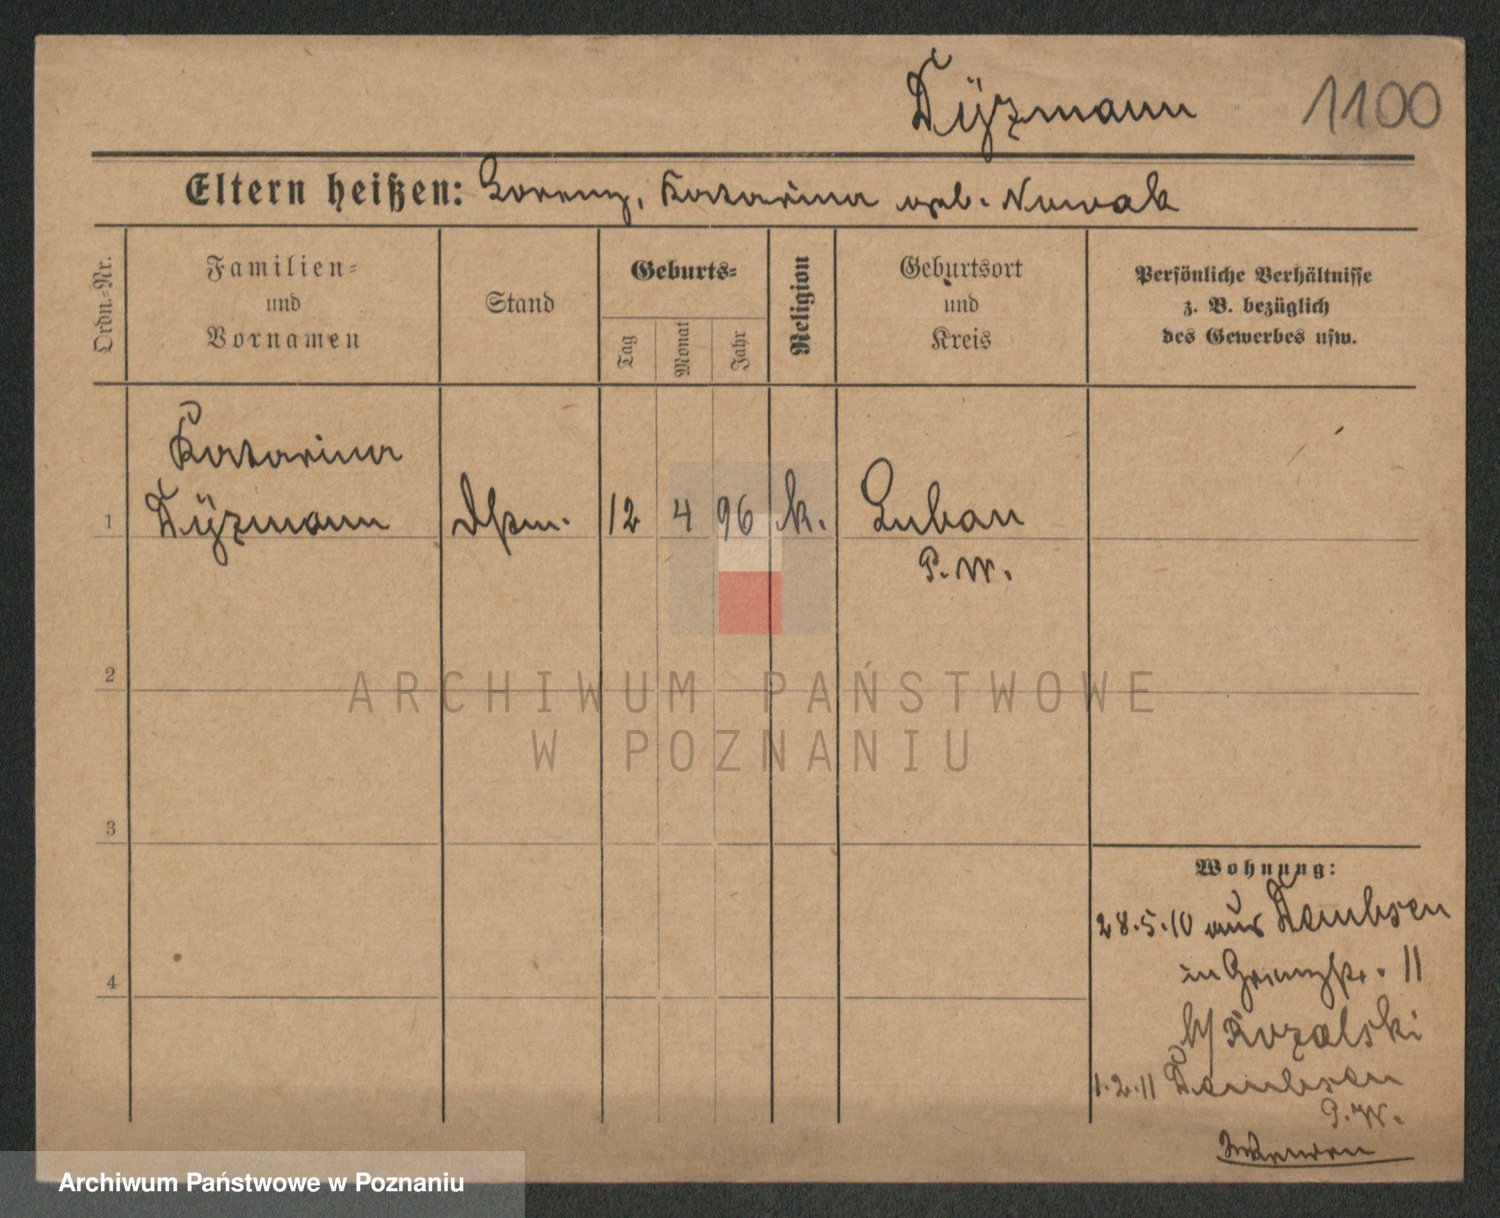 Dÿzmann 1100
Eltern heißen: Lorenz, Katarina geb. Nowak
Ordn.-Nr.
Familien-
und
Vornamen
Stand
Geburts-
Tag
Monat
Jahr
Religion
Geburtsort
und
Kreis
Persönliche Verhältnisse
z. B. bezüglich
des Gewerbes usw.
Katarina
1 Dÿzmann 12 4 96 k. Luban
P. W.
2
ARCHIWUM PAŃSTWOWE
W POZNANIU
3
Wohnung:
28.5.10 aus Dembsen
in Grenzstr. 11
b/ Kozalski
4
1.2.11 Dembsen
P. W.
Archiwum Państwowe w Poznaniu